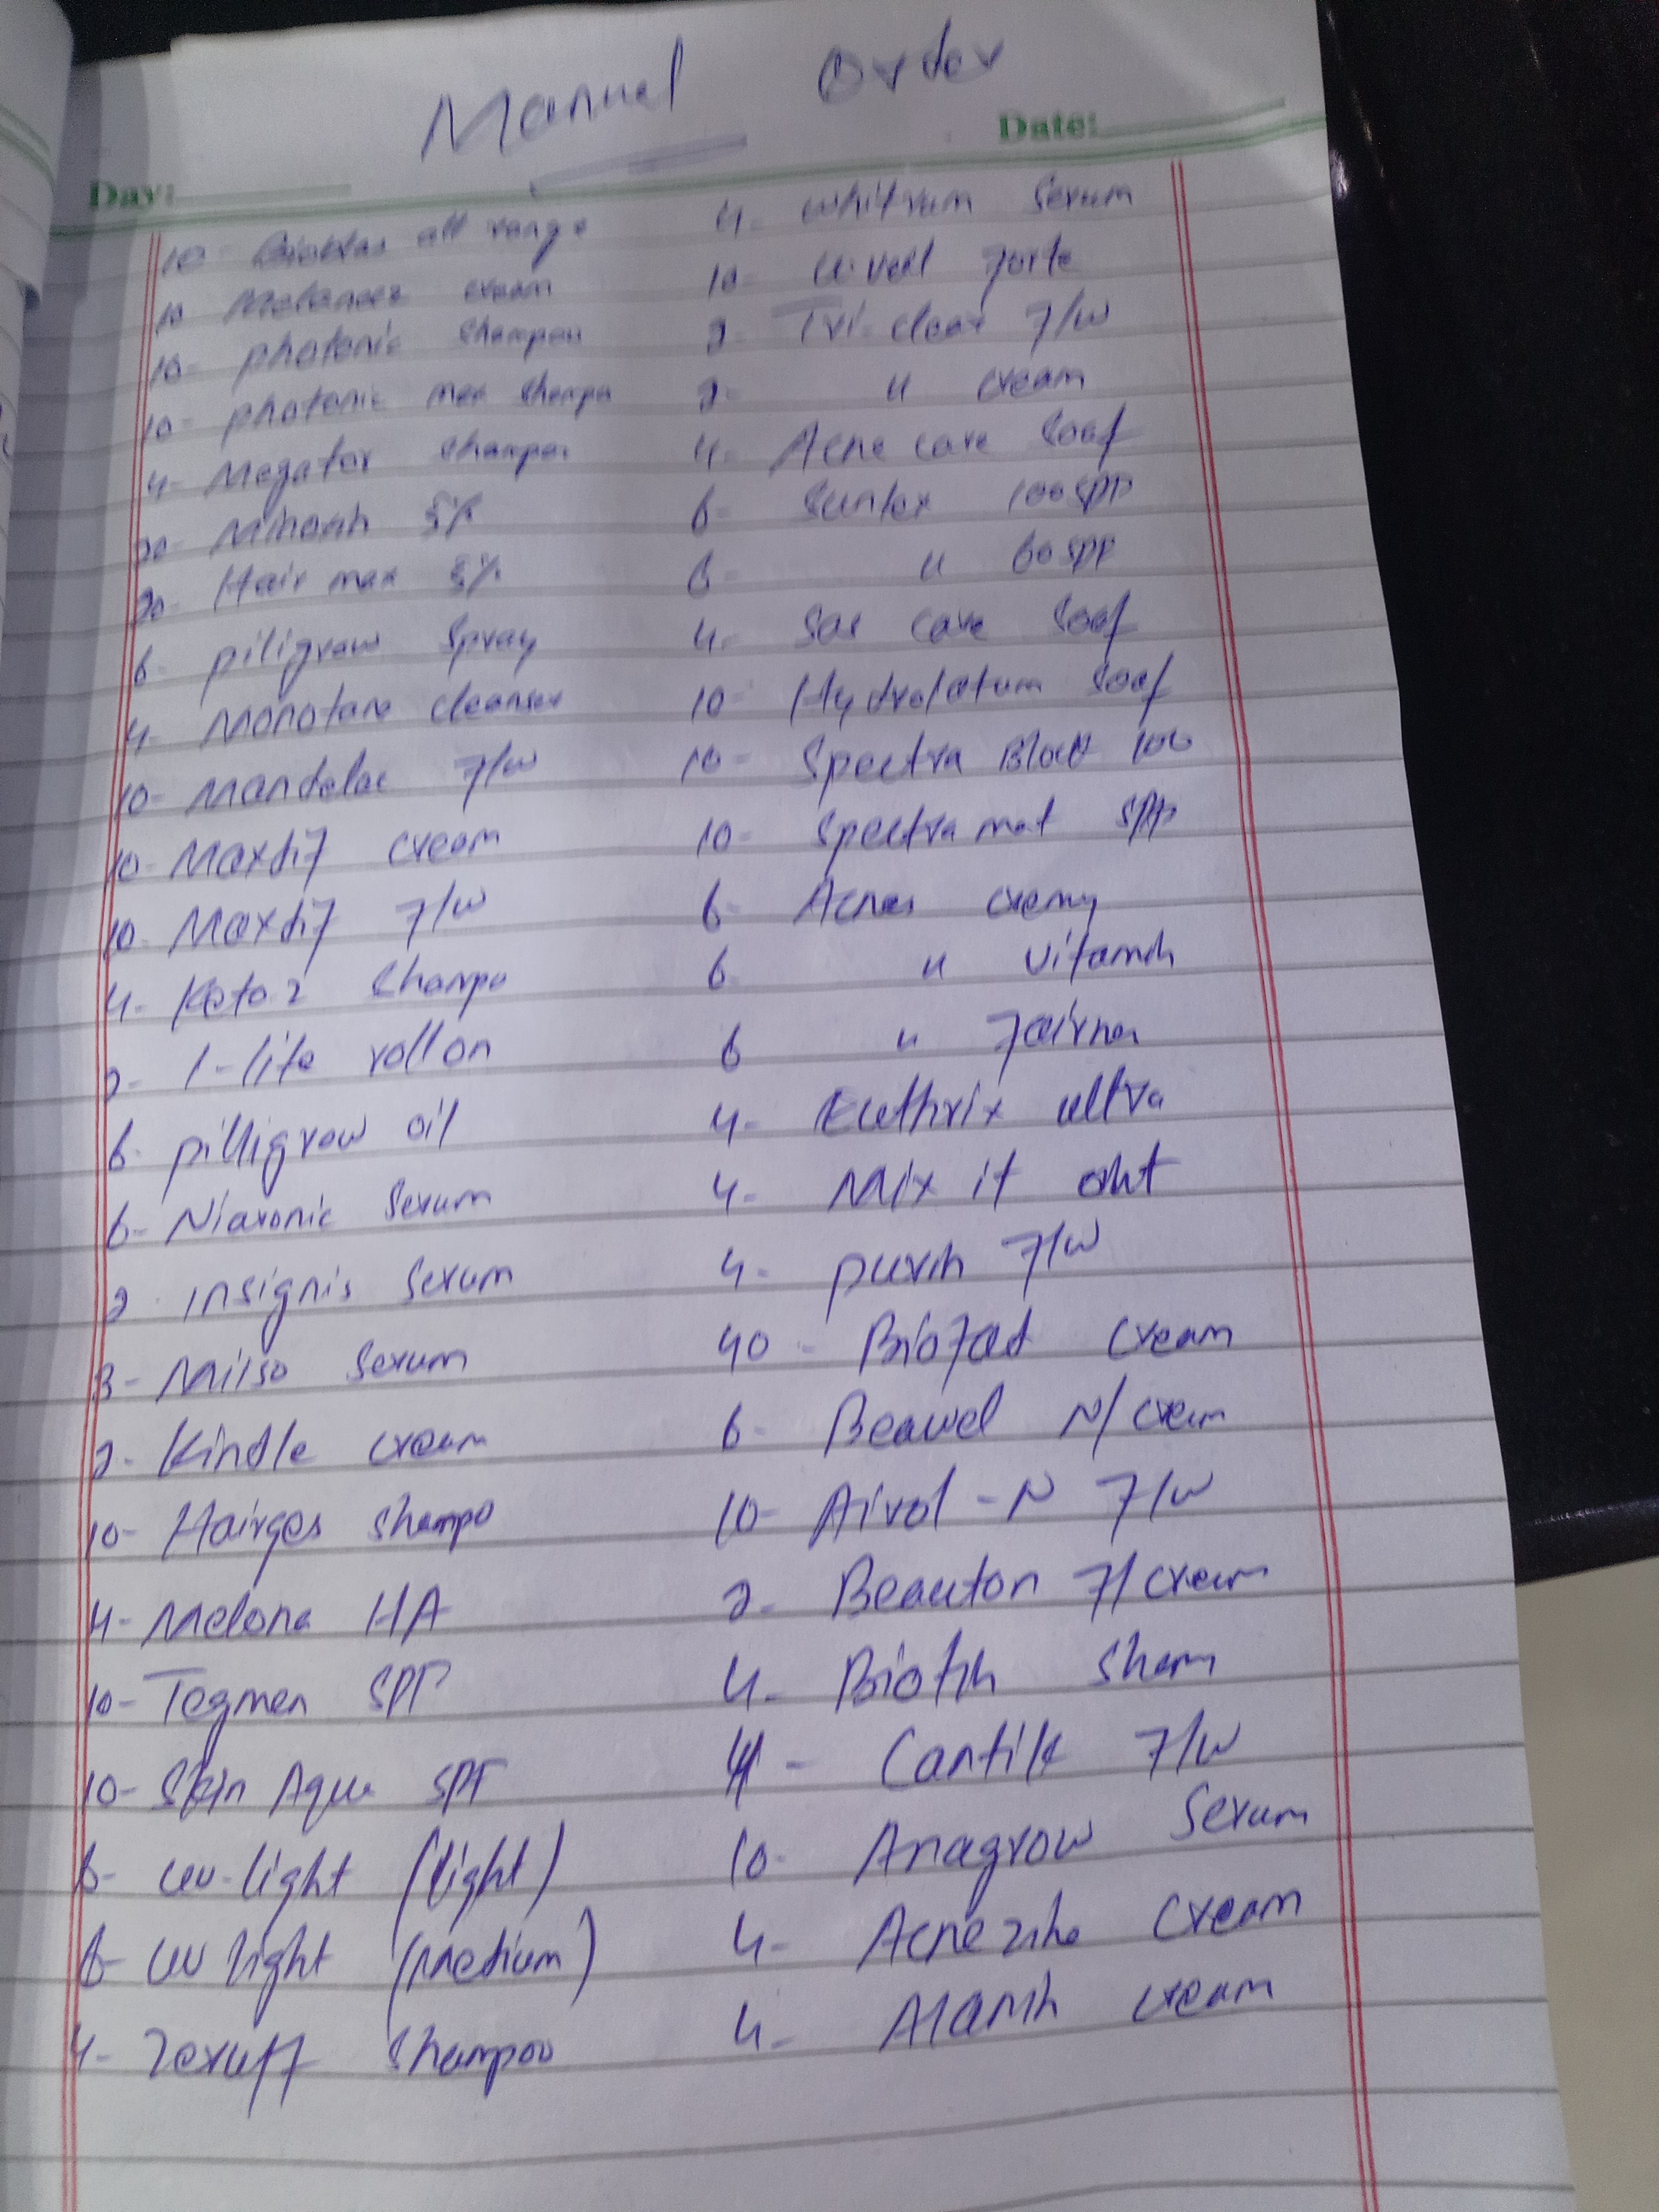 Manual Order
Day:
Date:
10- all range
10 Melancer cream
10- photonic shampoo
10- photonic max shampo
4- Megator shampoo
20- Minoxin 5%
20- Hair max 5%
6- piligrow spray
4- Monotane cleanser
10- Mandelac F/W
10- Maxdif cream
10- Maxdif F/W
4- Keto 2 shampo
2- 1-lite roll on
6- pilligrow oil
6- Niaxonic Serum
2- insignis serum
3- Milso serum
2- Kindle cream
10- Hairges shampo
4- Melona HA
10- Tegmen SPF
10- Skin Aqua SPF
6- uv-light (light)
6- uv light (medium)
4- Zeruff shampoo
4- whitrum serum
10- u.vell forte
2- Tri-clear F/W
2- " cream
4- Acne care Soap
6- Sunlex 100 SPF
6- " 60 SPF
4- Sas care soap
10- Hydrolatum soap
10- Spectra Block 100
10- Spectra mat SPF
6- Acnes cremy
6 " vitamin
6 " Fairnes
4- Euthrix ultra
4- Mix it oint
4- purin F/W
40- Biofad cream
6- Beawel N/cream
10- Airol-N F/W
2- Beauton F/cream
4- Biotin sham
4- Cantik F/W
10- Anagrow Serum
4- Acne zine cream
4- Alamin cream